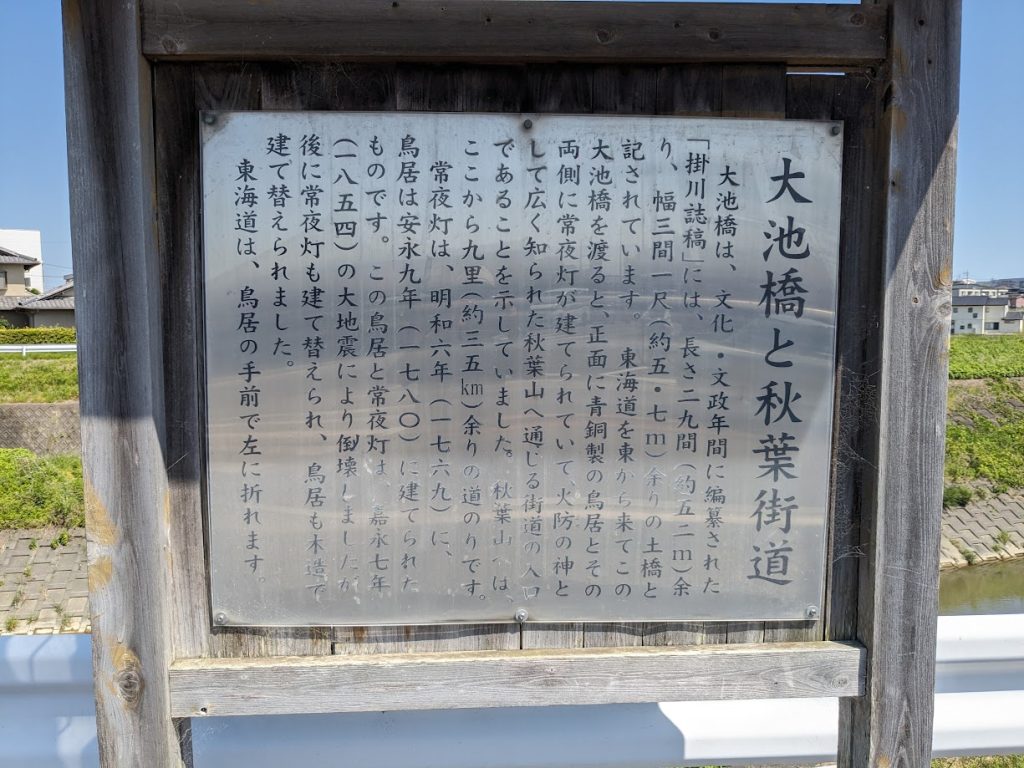 大池橋と秋葉街道
大池橋は、文化・文政年間に編纂された
「掛川誌稿」には、長さ二九間(約五二m)余
り、幅三間一尺(約五・七m)余りの土橋と
記されています。 東海道を東から来てこの
大池橋を渡ると、正面に青銅製の鳥居とその
両側に常夜灯が建てられていて、火防の神と
して広く知られた秋葉山へ通じる街道の入口
であることを示していました。秋葉山へは、
ここから九里(約三五km)余りの道のりです。
常夜灯は、明和六年(一七六九)に、
鳥居は安永九年(一七八〇)に建てられた
ものです。この鳥居と常夜灯は、嘉永七年
(一八五四)の大地震により倒壊しましたが
後に常夜灯も建て替えられ、鳥居も木造で
建て替えられました。
東海道は、鳥居の手前で左に折れます。